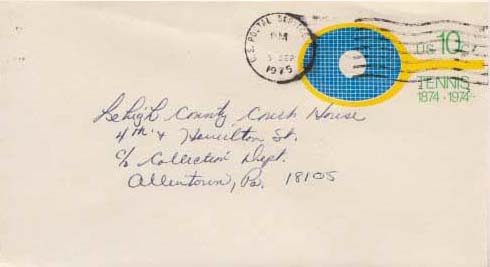 U.S. POSTAL SERVICE
PM
5 SEP
1975
U.S. 10 C
TENNIS
1874-1974
Lehigh County Court House
4th & Hamilton St.
c/o Collection Dept.
Allentown, Pa. 18105